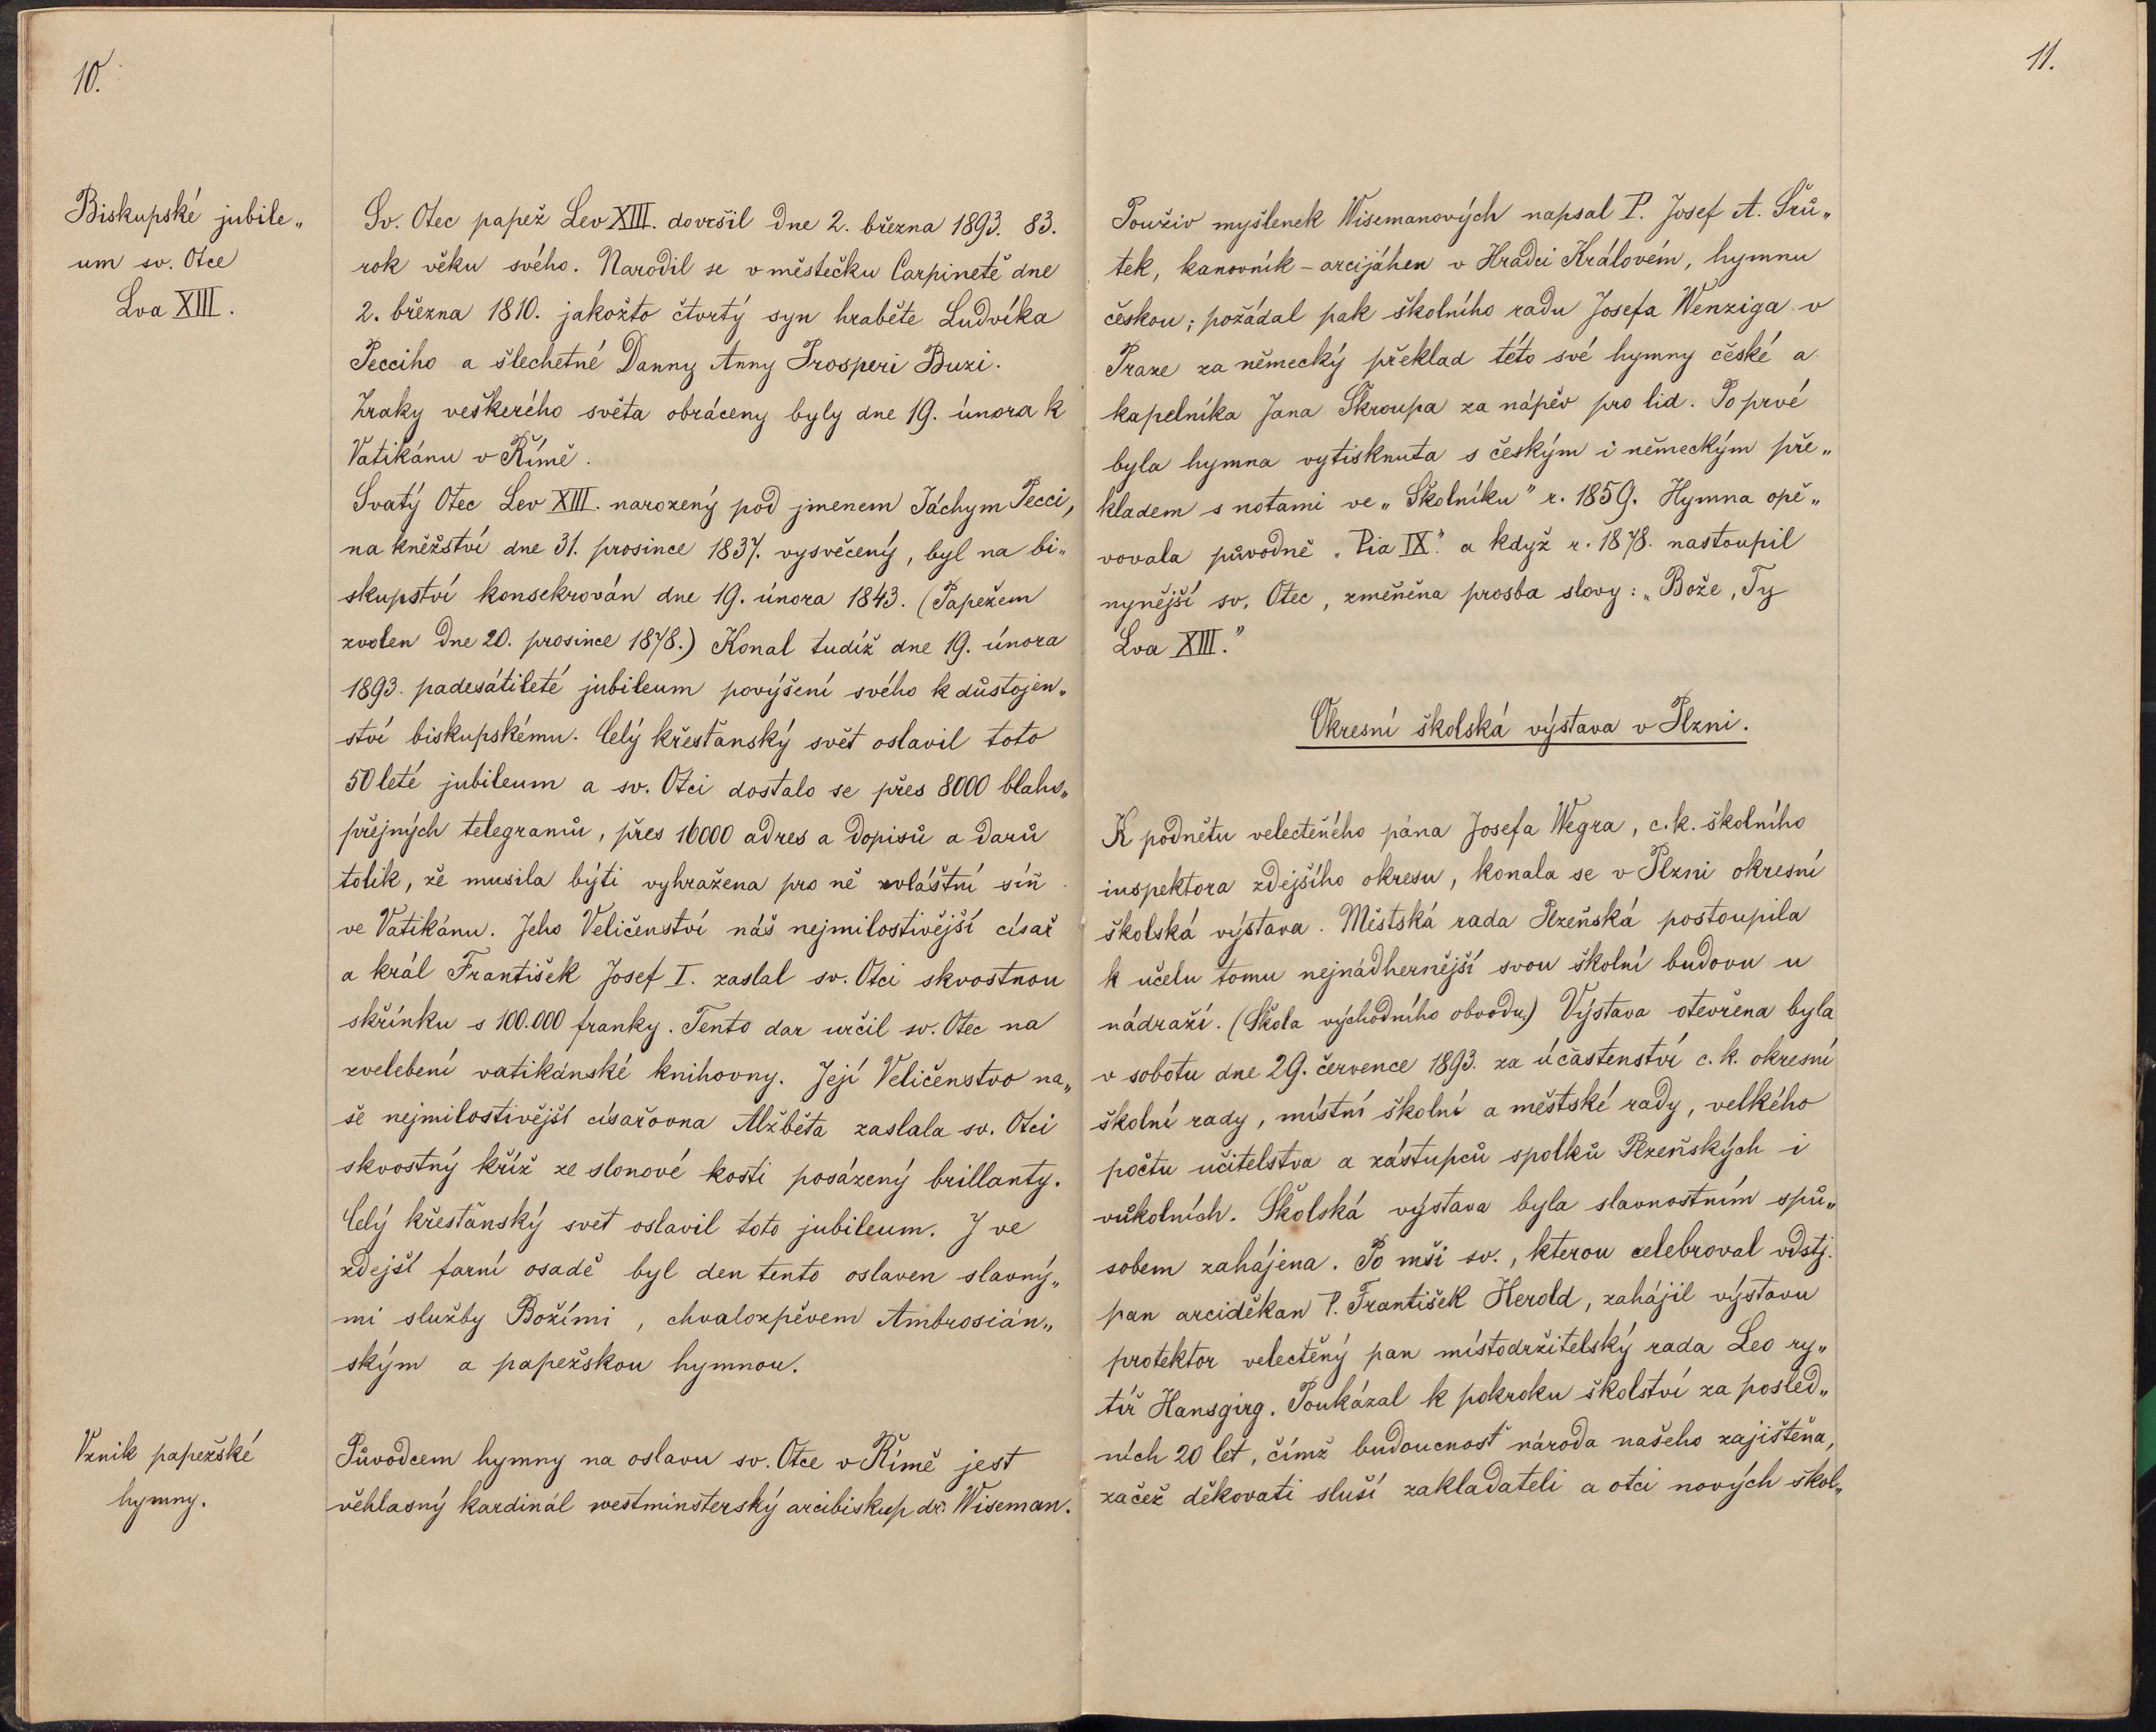 10.
Biskupské jubile„
um sv. Otce
Lva XIII.
Sv. Otec papež Lev XIII. dovršil dne 2. března 1893. 83.
rok věku svého. Narodil se v městečku Carpinetě dne
2. března 1810. jakožto čtvrtý syn hraběte Ludvíka
Pecciho a šlechetné Danny Anny Prosperi Buzi.
Zraky veškerého světa obráceny byly dne 19. února k
Vatikánu v Římě.
Svatý Otec Lev XIII. narozený pod jmenem Jáchym Pecci,
na kněžství dne 31. prosince 1837. vysvěcený, byl na bi„
skupství konsekrován dne 19. února 1843. (Papežem
zvolen dne 20. prosince 1878.) Konal tudíž dne 19. února
1893. padesátileté jubileum povýšení svého k důstojen„
ství biskupskému. Celý křesťanský svět oslavil toto
50leté jubileum a sv. Otci dostalo se přes 8000 blaho„
přejných telegramů, přes 16000 adres a dopisů a darů
tolik, že musila býti vyhražena pro ně zvláštní síň
ve Vatikánu. Jeho Veličenství náš nejmilostivější císař
a král František Josef I. zaslal sv. Otci skvostnou
skřínku s 100.000 franky. Tento dar určil sv. Otec na
zvelebení vatikánské knihovny. Její Veličenstvo na„
še nejmilostivější císařovna Alžběta zaslala sv. Otci
skvostný kříž ze slonové kosti posázený brillanty.
Celý křesťanský svět oslavil toto jubileum. I ve
zdejší farní osadě byl den tento oslaven slavný„
mi služby Božími, chvalozpěvem Ambrosián„
ským a papežskou hymnou.
Vznik papežské
hymny.
Původcem hymny na oslavu sv. Otce v Římě jest
věhlasný kardinál westminsterský arcibiskup dr. Wiseman.
11.
Použiv myšlenek Wisemanových napsal P. Josef A. Šrů„
tek, kanovník-arcijáhen v Hradci Královém, hymnu
českou; požádal pak školního radu Josefa Wenziga v
Praze za německý překlad této své hymny české a
kapelníka Jana Škroupa za nápěv pro lid. Poprvé
byla hymna vytisknuta s českým i německým pře„
kladem s notami ve „Školníku" r. 1859. Hymna opě„
vovala původně „Pia IX." a když r. 1878. nastoupil
nynější sv. Otec, změněna prosba slovy: „Bože, Ty
Lva XIII."
Okresní školská výstava v Plzni.
K podnětu velectěného pána Josefa Wegra, c.k. školního
inspektora zdejšího okresu, konala se v Plzni okresní
školská výstava. Městská rada Plzeňská postoupila
k účelu tomu nejnádhernější svou školní budovu u
nádraží. (Škola východního obvodu.) Výstava otevřena byla
v sobotu dne 29. července 1893. za účastenství c. k. okresní
školní rady, místní školní a městské rady, velkého
počtu učitelstva a zástupců spolků Plzeňských i
vůkolních. Školská výstava byla slavnostním spů„
sobem zahájena. Po mši sv., kterou celebroval vdstj.
pan arciděkan P. František Herold, zahájil výstavu
protektor velectěný pan místodržitelský rada Leo ry„
tíř Hansgirg. Poukázal k pokroku školství za posled„
ních 20 let, čímž budoucnosť národa našeho zajištěna,
začež děkovati sluší zakladateli a otci nových škol„